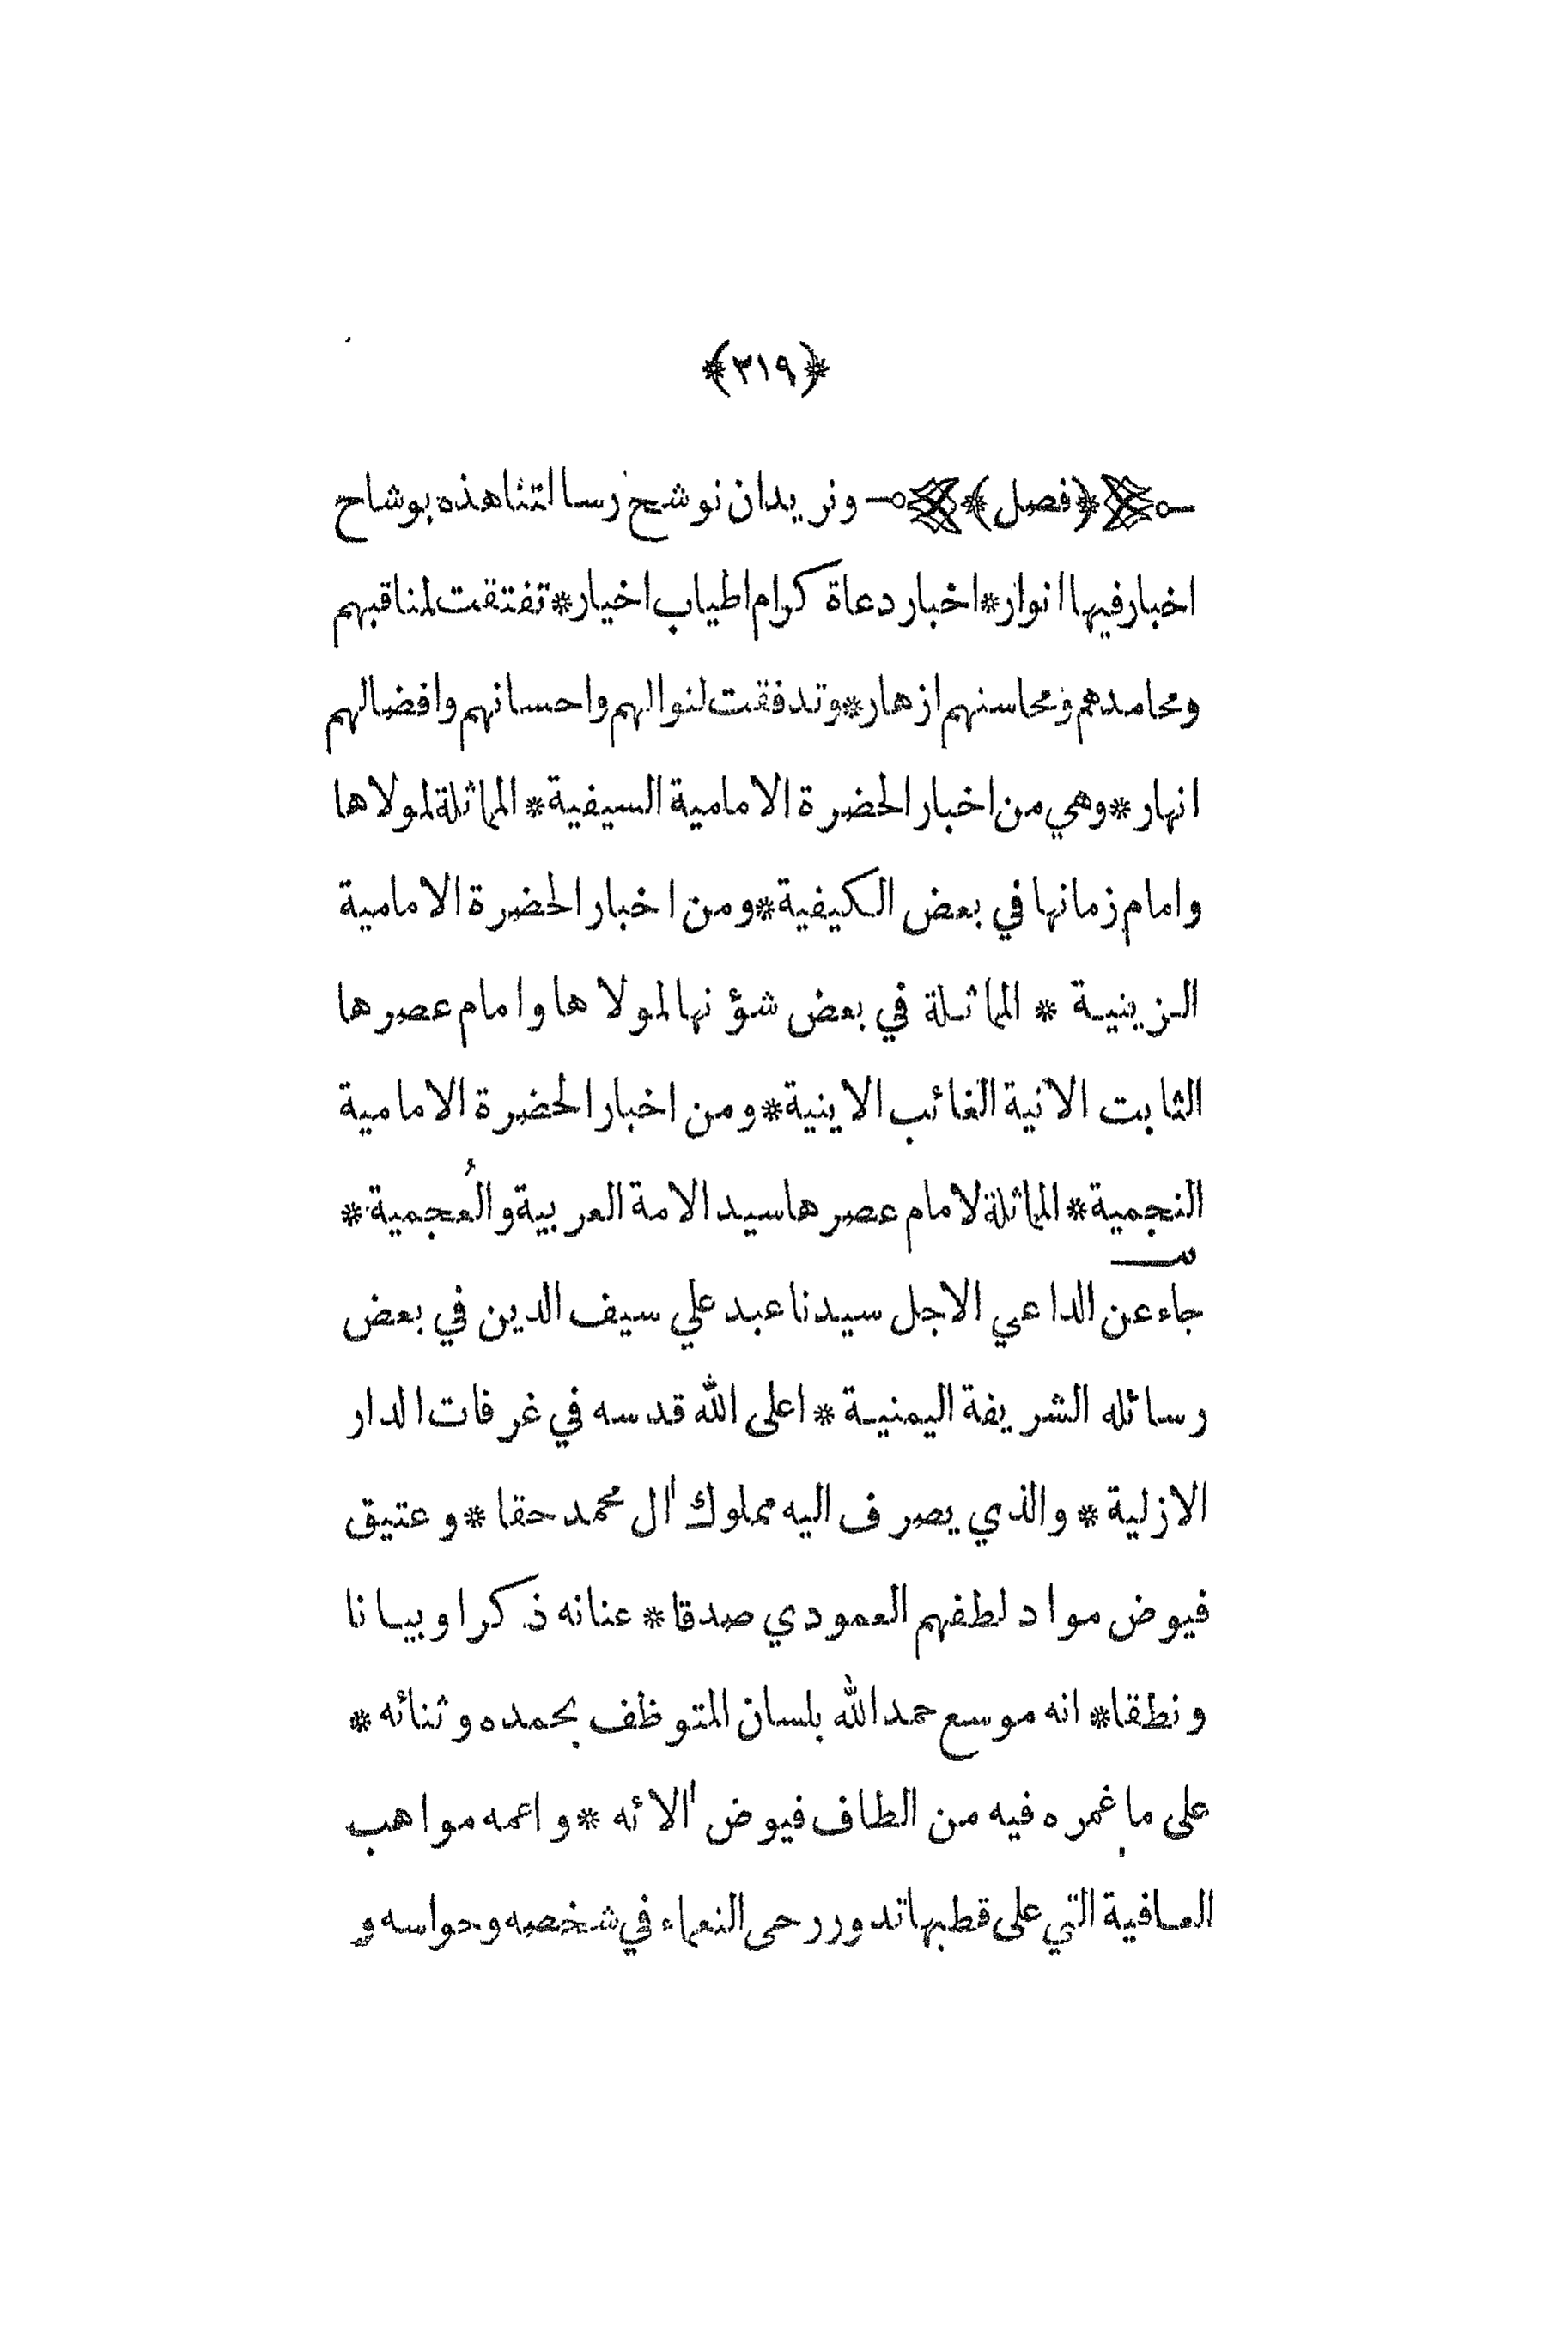 ﴿٣١٩﴾
﴿فصل﴾ ونريد ان نوشح رسالتنا هذه بوشاح
اخبار فيها انوار * اخبار دعاة كرام اطياب اخيار * تفتقت لمناقبهم
ومحامدهم ومحاسنهم ازهار * وتدفقت لنوالهم واحسانهم وافضالهم
انهار * وهي من اخبار الحضرة الامامية السيفية * المماثلة لمولاها
وامام زمانها في بعض الكيفية * ومن اخبار الحضرة الامامية
الزينية * المماثلة في بعض شؤنها لمولاها وامام عصرها
الثابت الانية الغائب الاينية * ومن اخبار الحضرة الامامية
النجمية * المماثلة لامام عصرها سيد الامة العربية والعُجمية *
جاء عن الداعي الاجل سيدنا عبد علي سيف الدين في بعض
رسائله الشريفة اليمنية * اعلى الله قدسه في غرفات الدار
الازلية * والذي يصرف اليه مملوك اٰل محمد حقا * وعتيق
فيوض مواد لطفهم العمودي صدقا * عنانه ذكرا وبيانا
ونطقا * انه موسع حمد الله بلسان المتوظف بحمده وثنائه *
على ما غمره فيه من الطاف فيوض اٰلائه * واعمه مواهب
العافية التي على قطبها تدور رحى النعماء في شخصه وحواسه و